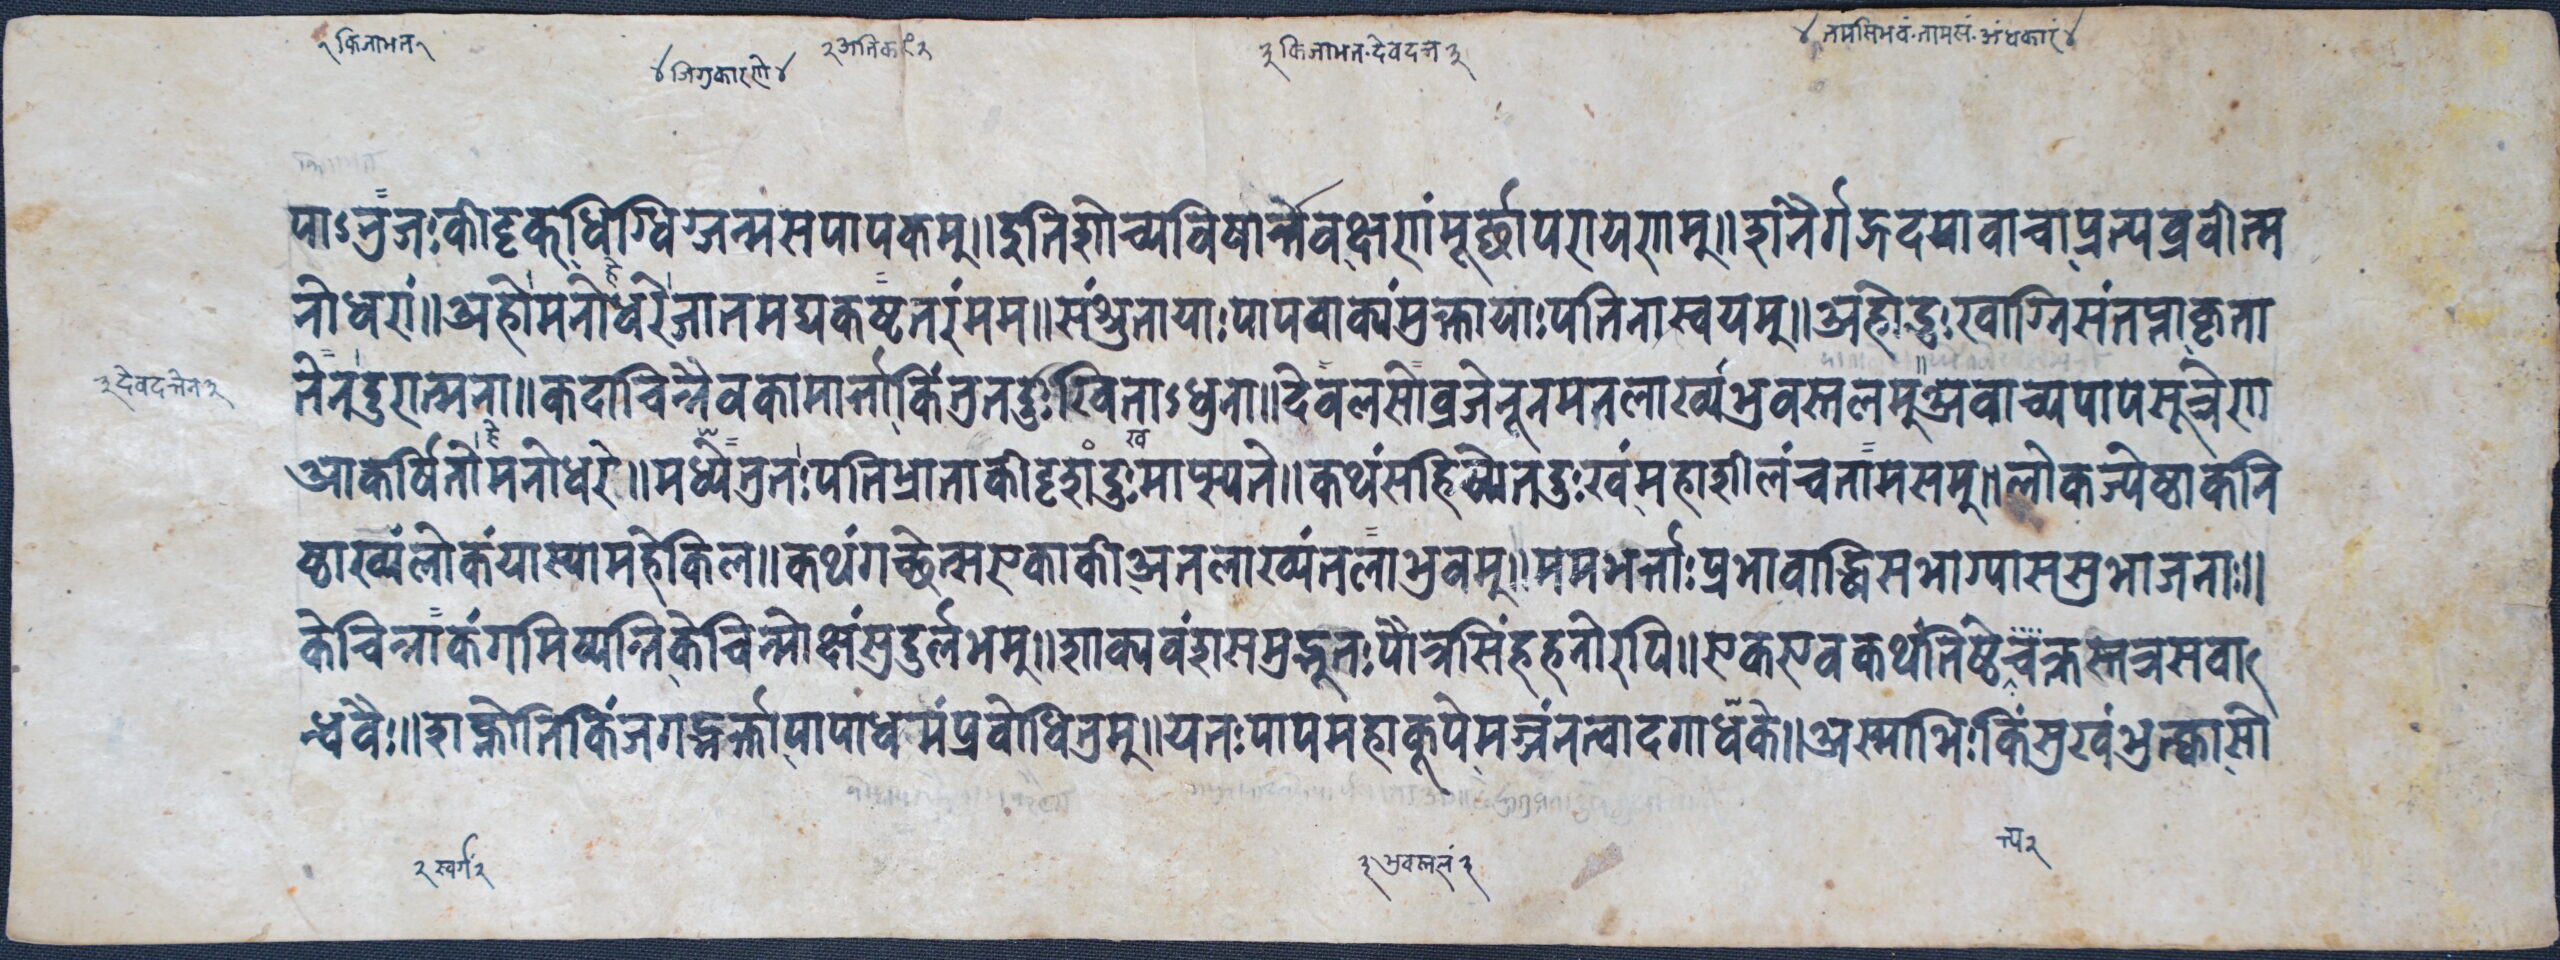 १ किजाभत १
४ जिगुकारणे ४
२ अतिक
३ किजाभत. देवदत्त ३
४ तमसिभवं. तामसं. अंधकारं ४
पाऽनुजःकीदृक्धिग्धिग्जन्मसपापकम्॥इतिशोच्यविषार्त्तेवक्षरणंमूर्छापरायणाम्॥शनैर्गद्गदयावाचाप्रत्यब्रवीन्म
नोधरां॥अहोमनोधरेजातमद्यकष्टतरंमम॥संश्रुतायाःपापवाक्यंमुक्तायाःपतिनास्वयम्॥अहोदुःखाग्निसंतप्ताकृता
तेनदुरात्मना॥कदाचिन्नैवकामार्त्ताकिंनुतदुःखिताऽधुना॥देवलसोव्रजेनूनमनलाख्यभुवस्तलम्अवाच्यपापसूत्रेण
३ देवदत्तेन ३
आकर्षितोमनोधरे॥मध्येनुतःपतिभ्राताकीदृशंदुःखमाप्स्यते॥कथंसहिष्यतेदुःखंमहाशीलंचतामसम्॥लोकज्येष्ठाकनि
ष्ठाख्यंलोकंयास्यामहेकिल॥कथंगच्छेत्सएकाकीअनलाख्यंतलाभुवम्॥ममभर्त्ताःप्रभावाद्धिसभाग्यासस्रभाजनाः॥
केचिन्नाकंगमिष्यन्तिकेचिन्मोक्षंसुदुर्लभम्॥शाक्यवंशसमुद्भूतःपौत्रसिंहहनोरपि॥एकएवकथंतिष्ठेचक्तस्तत्रसबा
न्धवैः॥शक्नोतिकिंजगद्भर्त्तापापाधमंप्रबोधितुम्॥यतःपापमहाकूपेमज्जंतत्वादगाधके॥अस्माभिःकिंसुखंभुत्क्वासो
२ स्वर्ग २
३ भुवस्तलं ३